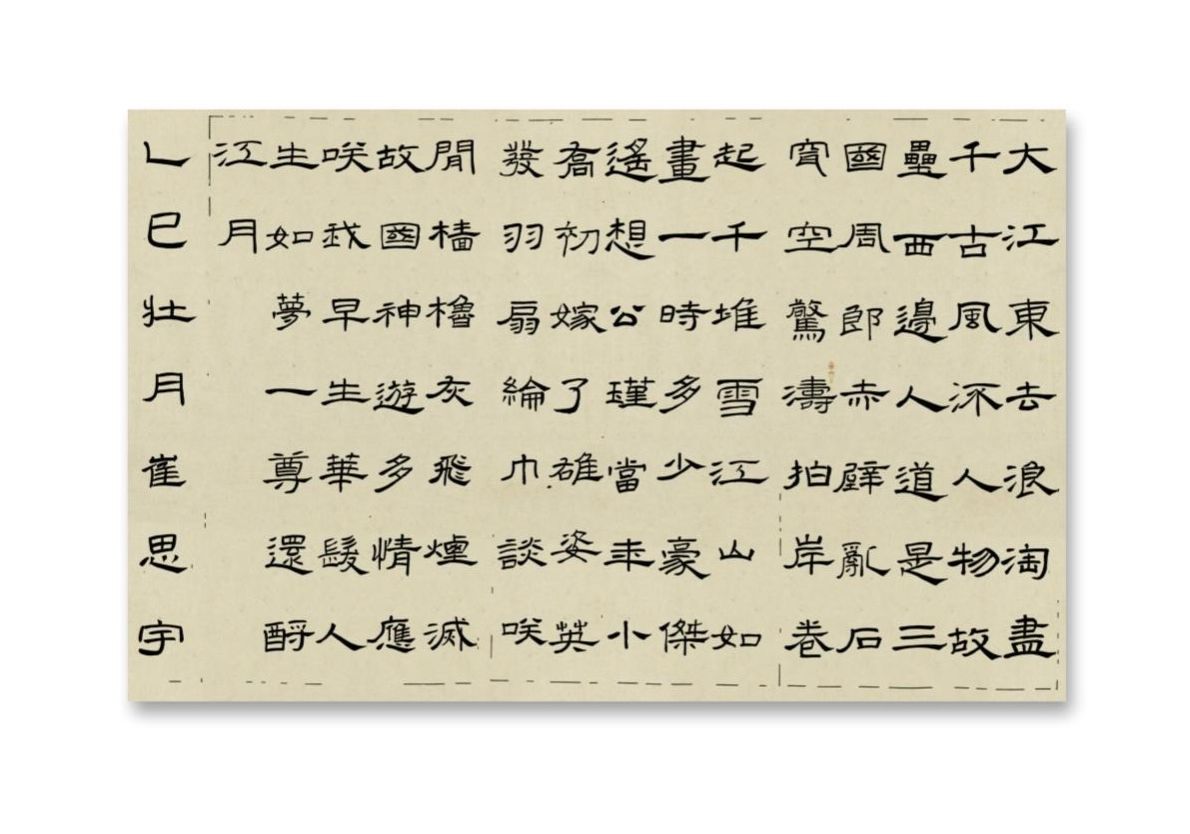 大江東去浪淘盡
千古風流人物故
壘西邊人道是三
國周郎赤壁亂石
穿空驚濤拍岸卷
起千堆雪江山如
畫一時多少豪傑
遙想公瑾當年小
喬初嫁了雄姿英
發羽扇綸巾談咲
閒檣櫓灰飛煙滅
故國神遊多情應
咲我早生華髮人
生如夢一尊還酹
江月
乙巳壯月崔思宇